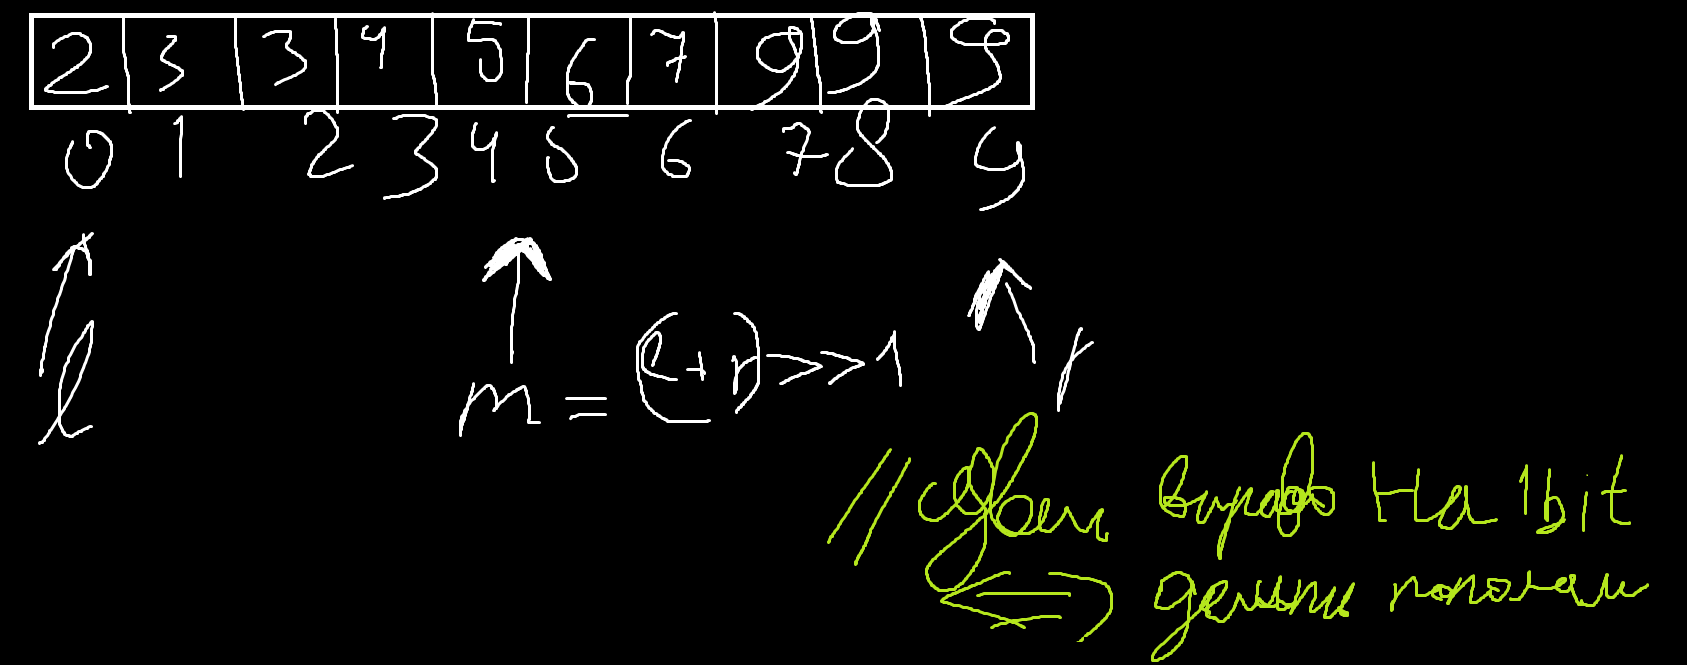 2 3 3 4 5 6 7 9 9 9
0 1 2 3 4 5 6 7 8 9
l m = (l+r)>>1 r
// сдвиг вправо на 1bit
<=> делить пополам